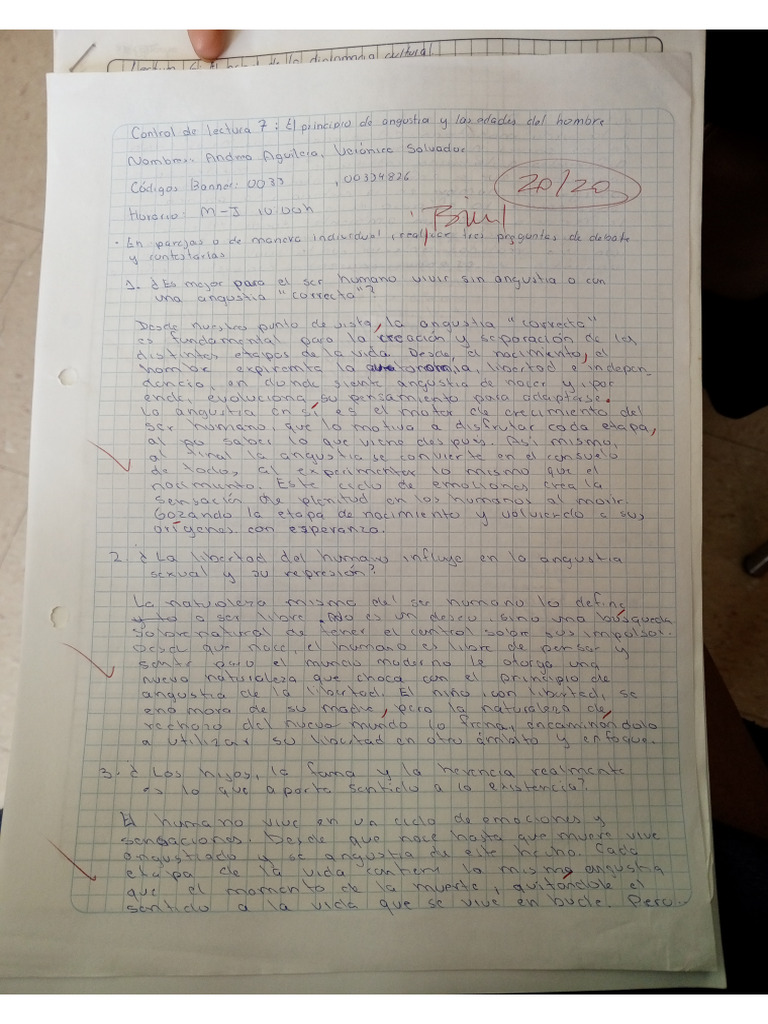 de la diplomacia cultural.
Control de lectura 7: El principio de angustia y las edades del hombre
Nombres: Andrea Aguilera, Verónica Salvador
Códigos Banner: 0033 , 00334826
20/20
Horario: M-J 10:00h
Bien!
• En parejas o de manera individual, realice tres preguntas de debate
y contestarlas
1. ¿Es mejor para el ser humano vivir sin angustia o con
una angustia "correcta"?
Desde nuestro punto de vista, la angustia "correcta"
es fundamental para la creación y separación de las
distintas etapas de la vida. Desde, el nacimiento, el
hombre expirementa la autonomia, libertad e indepen-
dencia, en donde siente angustia de nacer y, por
ende, evoluciona su pensamiento para adaptarse.
La angustia en sí, es el motor de crecimiento del
ser humano, que lo motiva a disfrutar cada etapa,
al no saber lo que viene después. Así mismo,
al final la angustia se convierte en el consuelo
de todos, al experimentar lo mismo que el
nacimiento. Este ciclo de emociones crea la
sensación de plenitud en los humanos al morir.
Gozando la etapa de nacimiento y volviendo a sus
orígenes con esperanza.
2. ¿La libertad del humano influye en la angustia
sexual y su represión?
La naturaleza misma del ser humano lo define
a ser libre. No es un deseo, sino una búsqueda
sobrenatural de tener el control sobre sus impulsos.
Desde que nace, el humano es libre de pensar y
sentir pero el mundo moderno le otorga una
nueva naturaleza que choca con el principio de
angustia de la libertad. El niño, con libertad, se
enamora de su madre, pero la naturaleza de
rechazo del nuevo mundo lo frena, encaminándolo
a utilizar su libertad en otro ámbito y enfoque.
3. ¿Los hijos, la fama y la herencia realmente
es lo que aporta sentido a la existencia?
El humano vive en un ciclo de emociones y
sensaciones. Desde que nace hasta que muere vive
angustiado y se angustia de este hecho. Cada
etapa de la vida contiene la misma angustia
que el momento de la muerte, quitandole el
sentido a la vida que se vive en bucle. Pero